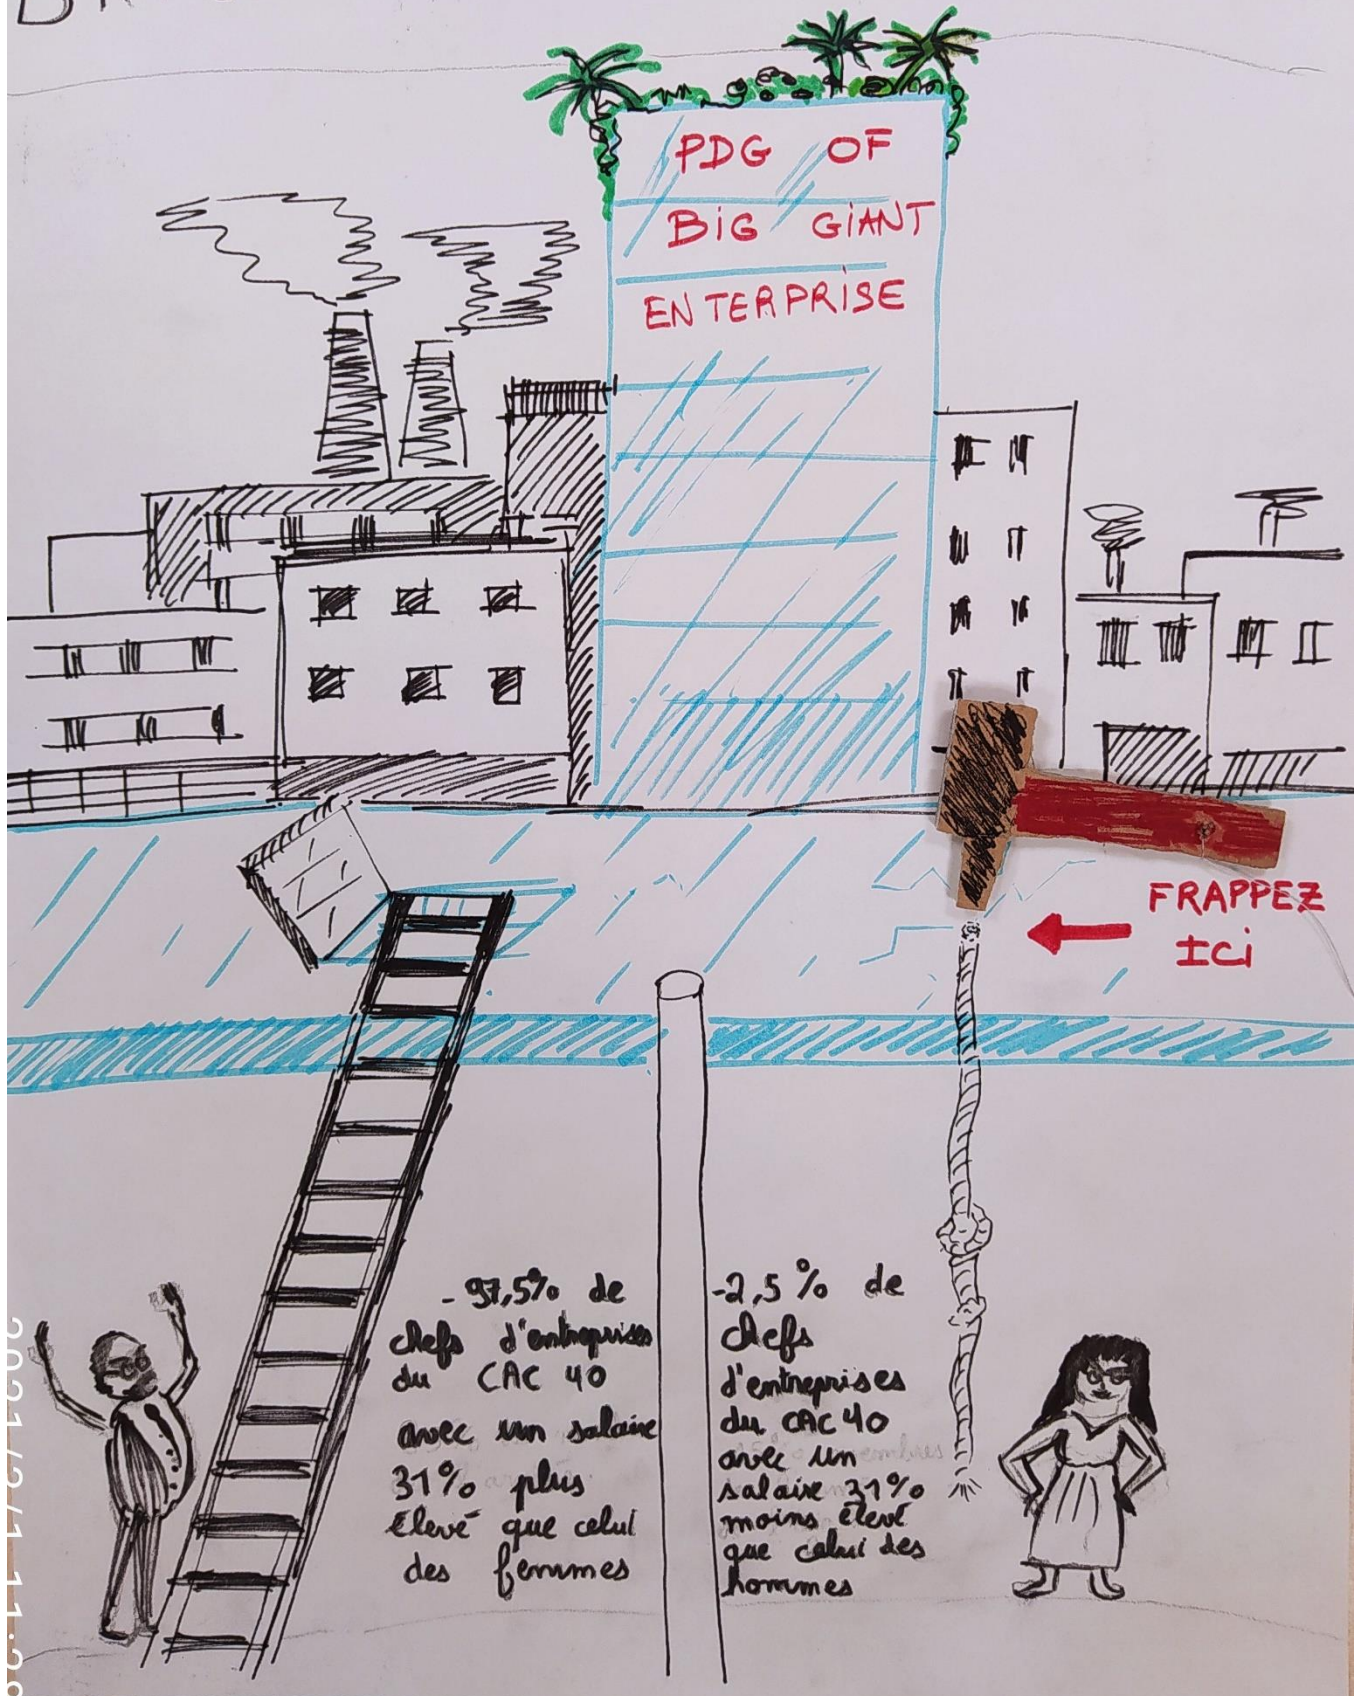 PDG OF
BiG GiANT
ENTERPRiSE
FRAPPEZ
ICi
- 97,5% de
chefs d'entreprises
du CAC 40
avec un salaire
31% plus
élevé que celui
des femmes
-2,5% de
chefs
d'entreprises
du CAC 40
avec un
salaire 31%
moins élevé
que celui des
hommes